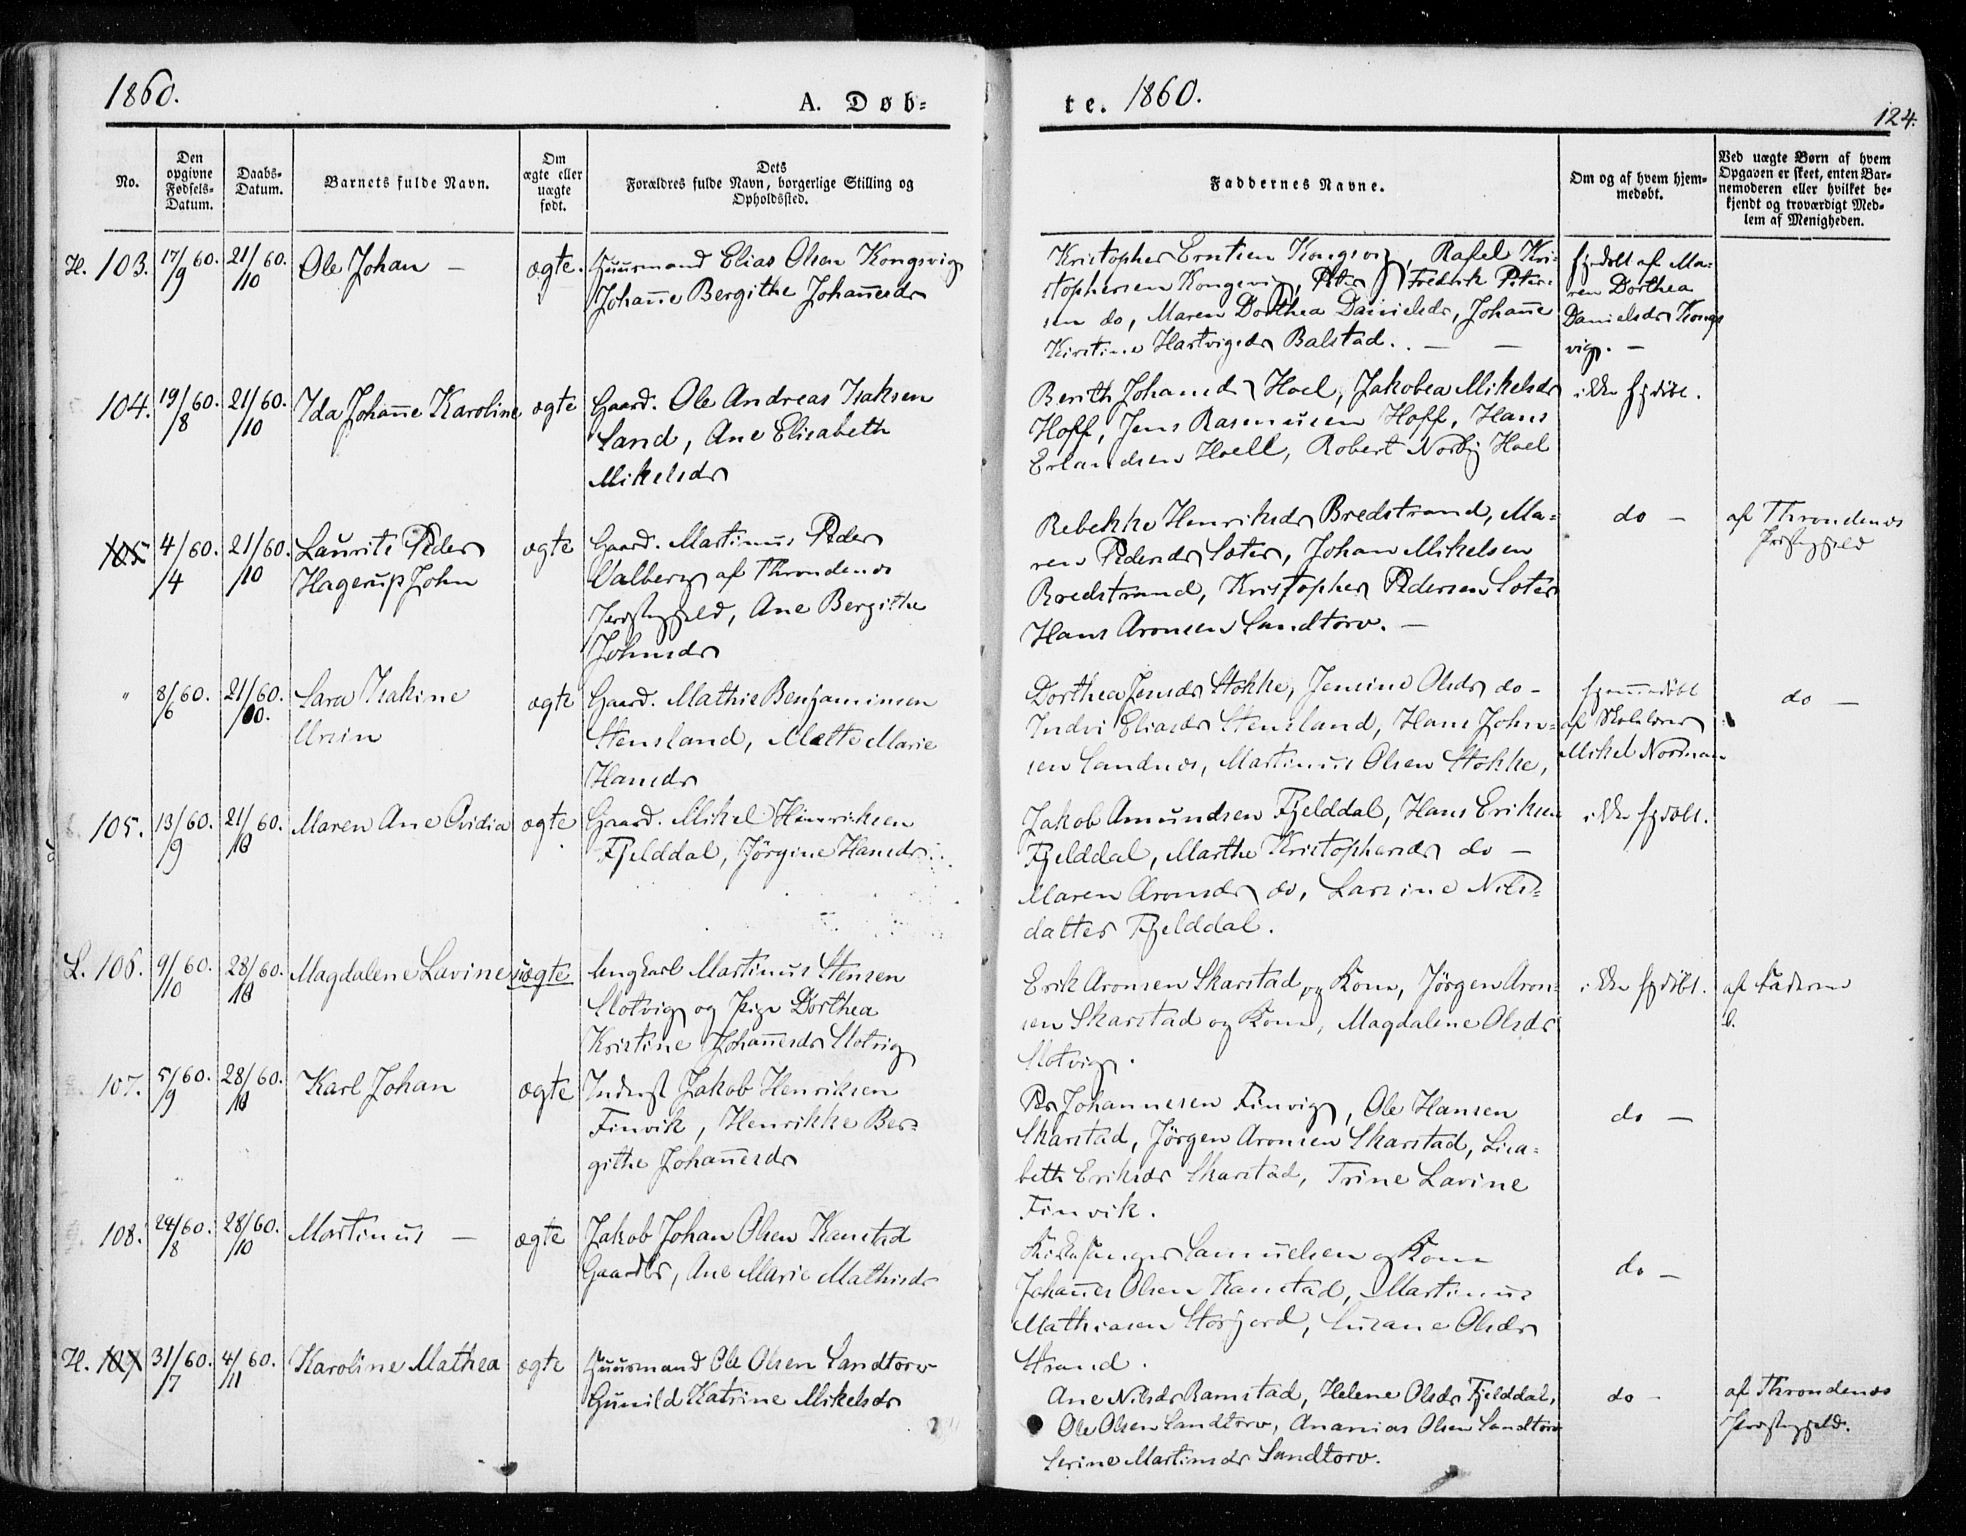 1860.
A. Døb=
te. 1860.
124.
No.
Den opgivne Fødsels-Datum.
Daabs-Datum.
Barnets fulde Navn.
Om ægte eller uægte født.
Dets Forældres fulde Navn, borgerlige Stilling og Opholdssted.
Faddernes Navne.
Om og af hvem hjem-medøbt.
Ved uægte Børn af hvem Opgaven er skeet, enten Bar-nemoderen eller hvilket be-kjendt og troværdigt Med-lem af Menigheden.
H. 103. 17/9 60. 21/10 60. Ole Johan – ægte. Huusmand Elias Olsen Kongsvig
Johanne Bergithe Johannesdr
Kristopher Erntsen Kongsvig, Rafel Kri-
stophersen Kongsvig, Peter Fredrik Peter-
sen do, Maren Dorthea Danielsdr, Johanne
Kirstine Hartvigsdr Balstad. – –
hjdøbt af Ma-
ren Dorthea
Danielsdr Kongs
vig. –
104. 19/8 60. 21/10 60. Ida Johanne Karoline ægte Gaard. Ole Andreas Isaksen
Sand, Ane Elisabeth
Mikelsdr
Berith Johansd Hoel, Jakobea Mikelsdr
Hoff, Jens Rasmusen Hoff, Hans
Erlandsen Hoell, Robert Norbg Hoel
ikke hjdøbt.
105 4/4 60. 21/10 60. Laurits Peder
Hagerup John
ægte Gaard. Martinus Peder
Valberg af Throndenæs
Præstegjeld, Ane Bergithe
Johnsdr
Rebekke Henriksdr Bredstrand, Ma-
ren Pedersdr Soter, Johan Mikelsen
Bredstrand, Kristopher Pedersen Soter
Hans Aronsen Sandtorv. –
do –
af Throndenæs
Præstegjeld
" 8/6 60. 21/10 60. Sara Isakine
Ursin
ægte Gaard. Mathis Benjaminsen
Stensland, Mette Marie
Hansdr
Dorthea Jensdr Stokke, Jensine Olsdr do –
Indvi Eliasdr Stensland, Hans John-
sen Sandnæs, Martinus Olsen Stokke,
hjemmedøbt
af Skolelærer
Mikel Norman
do –
105. 13/9 60. 21/10 60. Maren Ane Ovidia ægte Gaard. Mikel Hinriksen
Fjelddal, Jørgine Hansdr
Jakob Amundsen Fjelddal, Hans Eriksen
Fjelddal, Marthe Kristophersdr do –
Maren Aronsdr do, Larsine Nils-
datter Fjelddal.
ikke hjdøbt.
L. 106. 9/10 60. 28/10 60. Magdalene Lavine uægte Ungkarl Martinus Stensen
Slotvig og Pige Dorthea
Kristine Johannesdr Slotvig
Erik Aronsen Skarstad og Kone, Jørgen Aron-
sen Skarstad og Kone, Magdalene Olsdr
Slotvig.
ikke hjdøbt.
af Faderen
107. 5/9 60. 28/10 60. Karl Johan ægte Inderst Jakob Henriksen
Finvik, Henrikke Ber-
githe Johannesdr
Per Johannesen Finvig, Ole Hansen
Skarstad, Jørgen Aronsen Skarstad, Lisa-
beth Eriksdr Skarstad, Trine Lavine
Finvik.
do –
108. 24/8 60. 28/10 60. Martinus – ægte Jakob Johan Olsen Kanstad
Gaardbr, Ane Marie Mathisdr
Kirkesanger Samuelsen og Kone
Johannes Olsen Kanstad, Martinus
Mathiasen Storjord, Susane Olsdr
Strand.
do –
H. 109 31/7 60. 4/11 60. Karoline Mathea ægte Huusmand Ole Olsen Sandtorv
Gunild Katrine Mikelsdr
Ane Nilsdr Ramstad, Helene Olsdr Fjelddal,
Ole Olsen Sandtorv, Ananias Olsen Sandtorv
Serine Martinsdr Sandtorv.
do –
af Throndenæs
Præstegjeld.